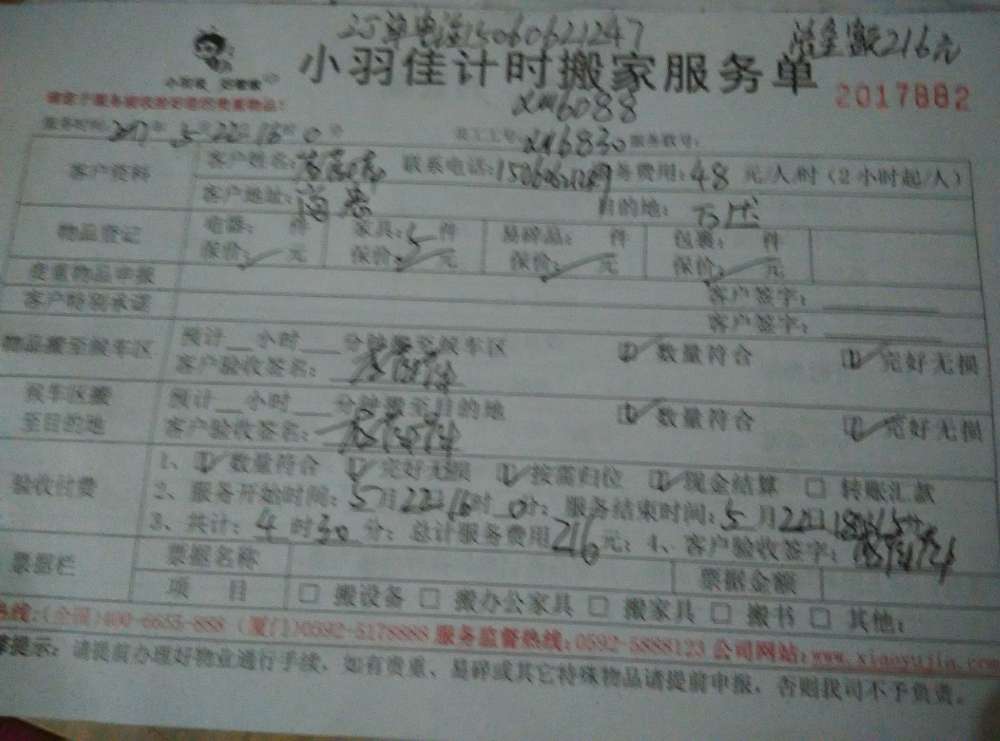 订单电话15060621247
现金实收216元
小羽佳计时搬家服务单
2017882
xm6088
请您于服务前收验好您的贵重物品!
服务时间:2017年5月22日16时0分 员工工号:xm6830 服务账号:
客户资料 客户姓名: 联系电话:15060621247 服务费用:48元/人/时(2小时起/人)
客户地址: 目的地:万达
物品登记 电器: 件 家具:5件 易碎品: 件 包裹: 件
保价: 元 保价: 元 保价: 元 保价: 元
贵重物品申报 客户签字:
客户特别承诺 客户签字:
物品搬至候车区 预计__小时___分钟搬至候车区 数量符合 完好无损
客户验收签名:
候车区搬至目的地 预计__小时___分钟搬至目的地 数量符合 完好无损
客户验收签名:
验收付费 1、数量符合 完好无损 按需归位 现金结算 □ 转账汇款
2、服务开始时间:5月22日16时0分;服务结束时间:5月22日18时15分
3、共计:4时30分;总计服务费用216元;4、客户验收签字:
票据栏 票据名称 票据金额
项 目 □ 搬设备 □ 搬办公家具 □ 搬家具 □ 搬书 □ 其他:
热线:(全国)400-6655-888 (厦门)0592-5178888 服务监督热线:0592-5888123 公司网站:www.xiaoyujia.com
提示:请提前办理好物业通行手续,如有贵重、易碎或其它特殊物品请提前申报,否则我司不予负责。